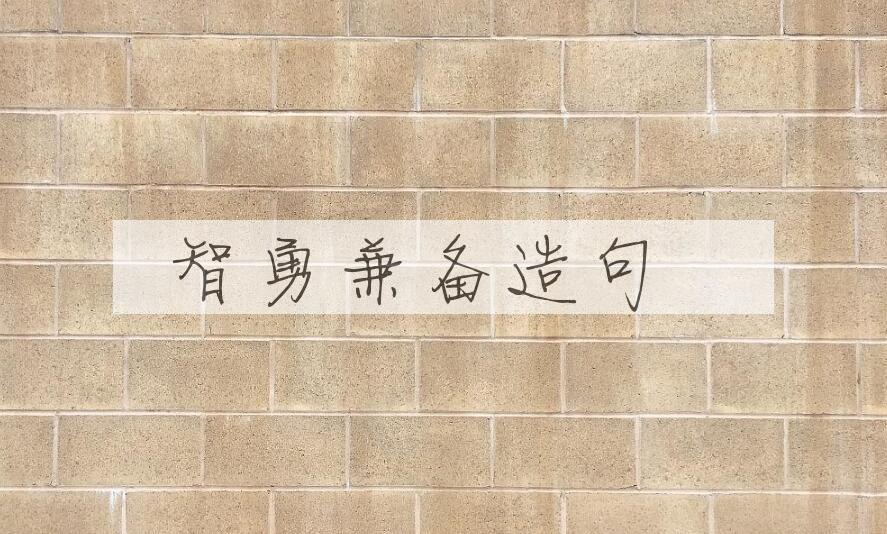 智勇兼备造句